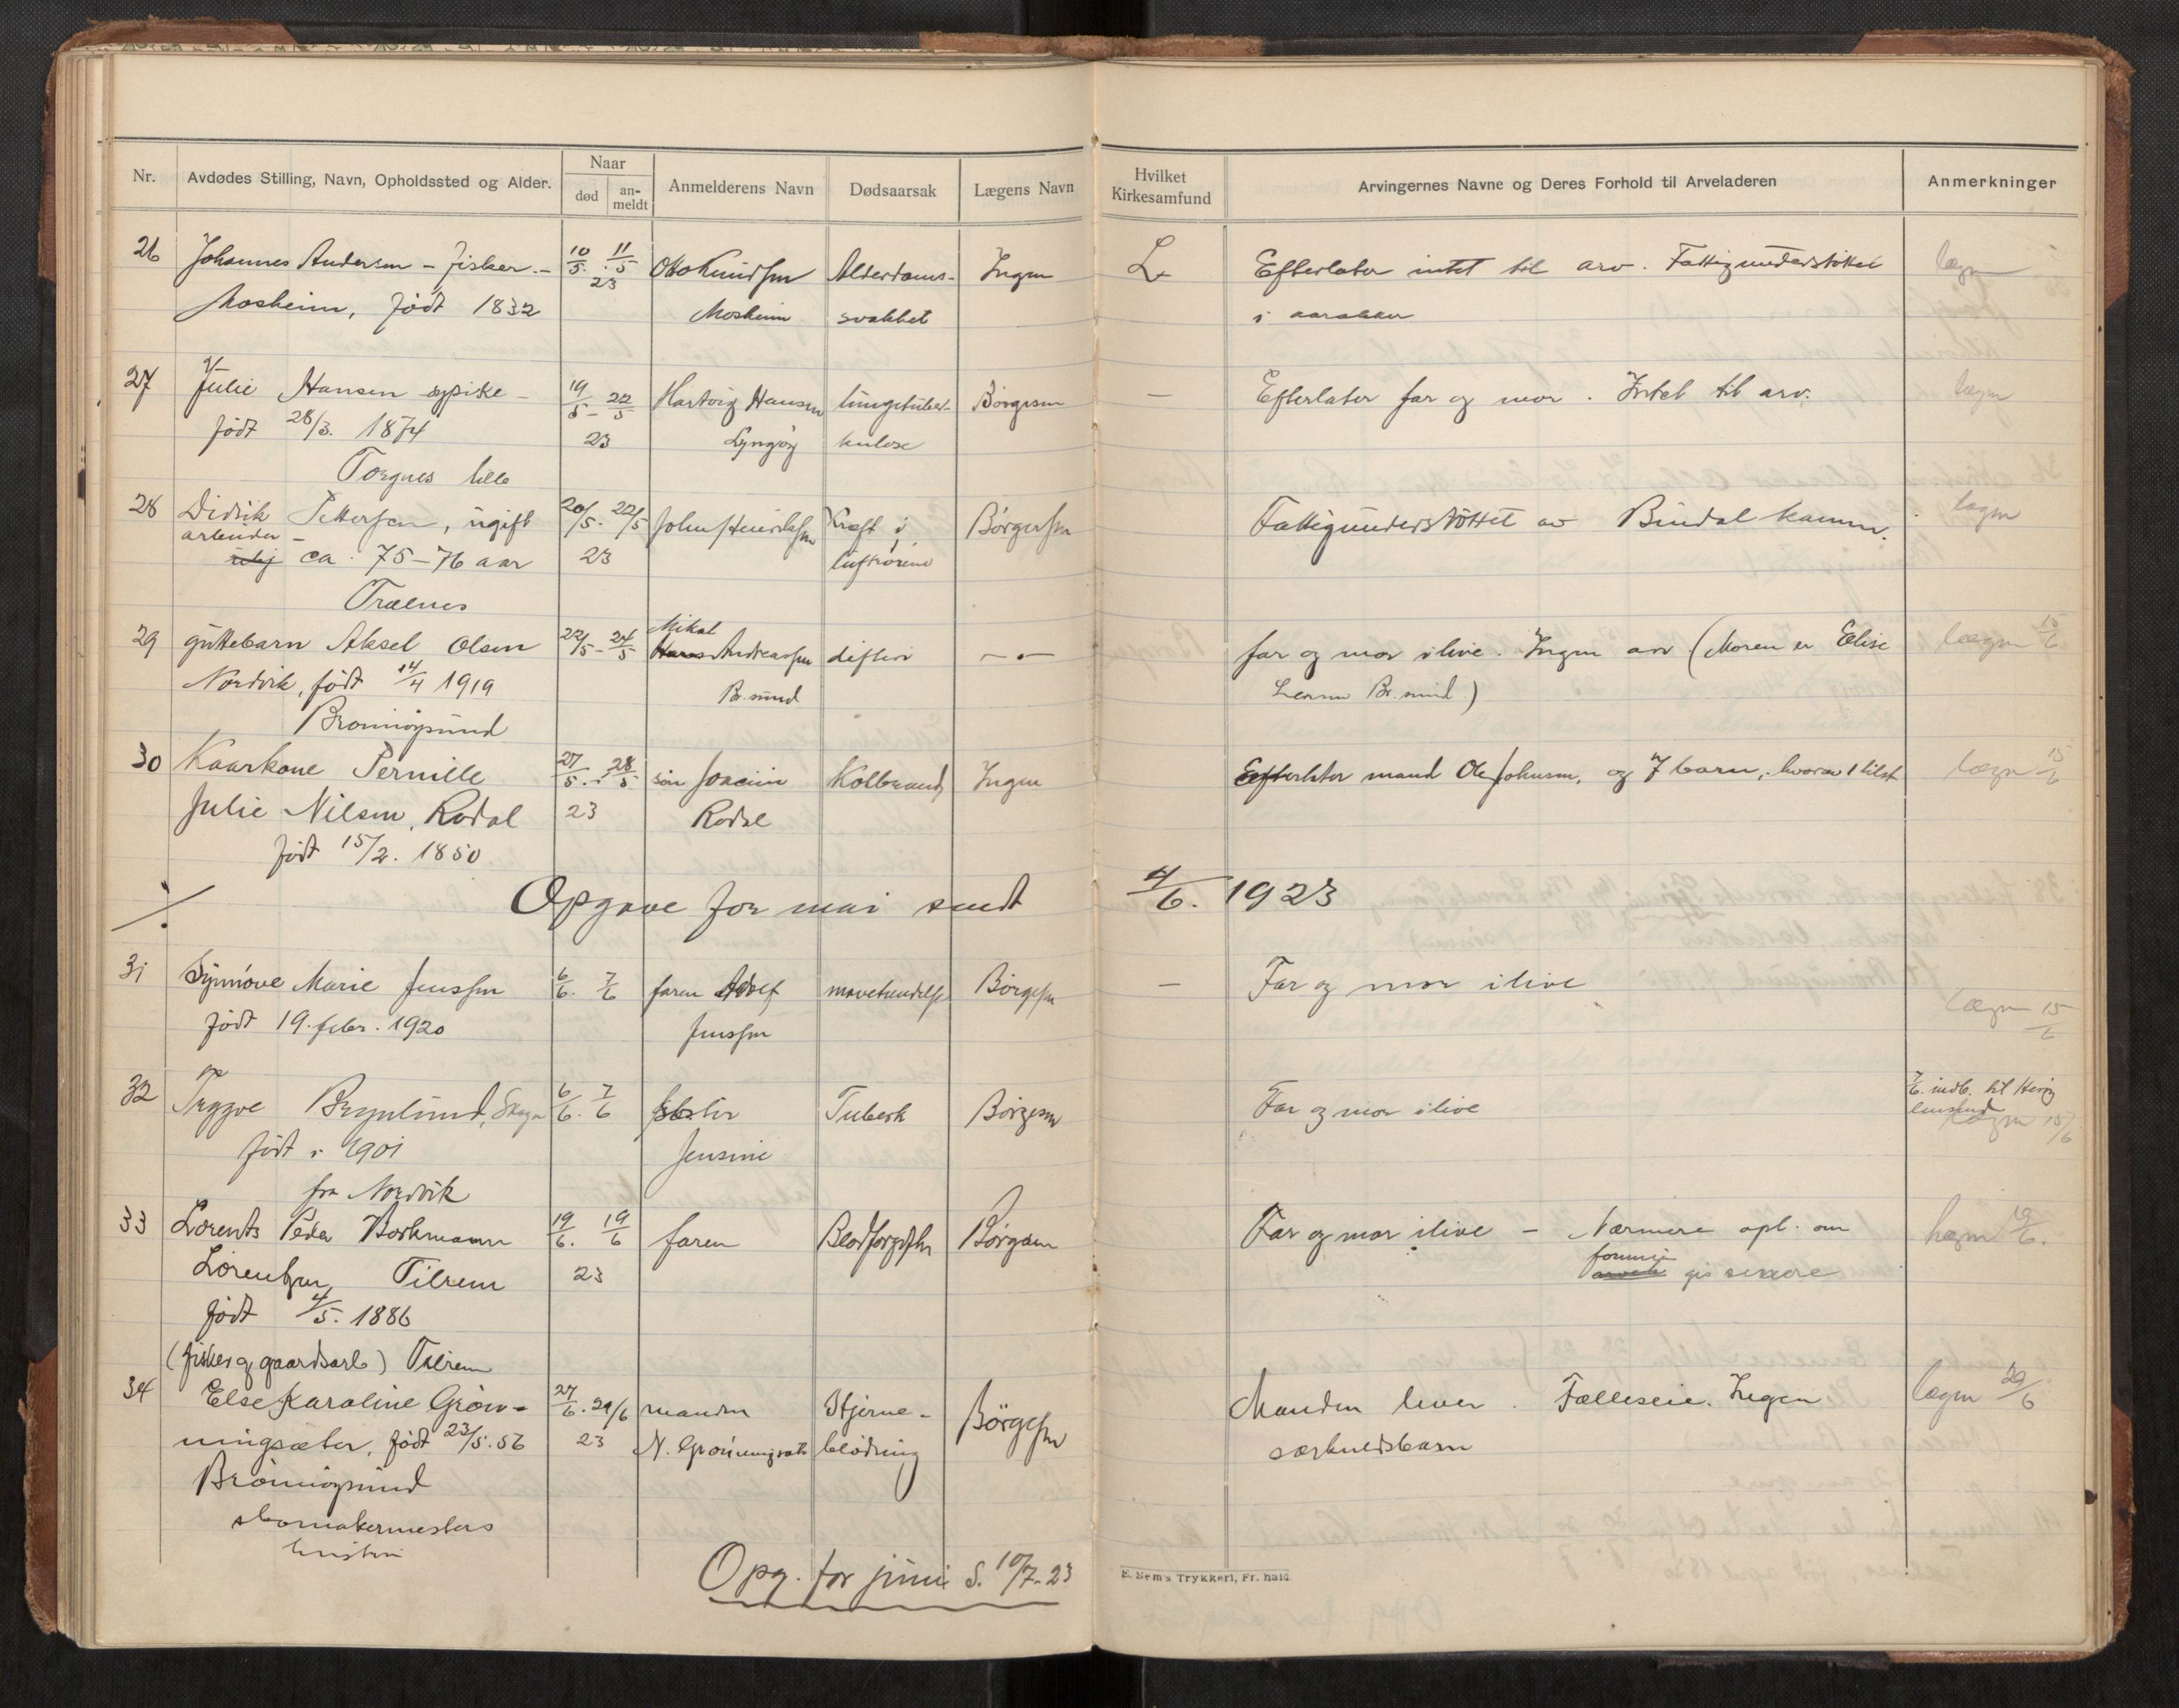 Nr.
Avdødes Stilling, Navn, Opholdssted og Alder.
Naar
død
an-
meldt
Anmelderens Navn
Dødsaarsak
Lægens Navn
Hvilket
Kirkesamfund
Arvingernes Navne og Deres Forhold til Arveladeren
Anmerkninger
26 Johannes Andersen - fisker - 10/5 11/5 Otto Knudsen Alderdoms- Ingen L. Efterlater intet til arv. Fattigunderstøttet lægn
Mosheim, født 1832 23 Mosheim svakhet i
27 Julie Hansen - 19/5 - 22/5 Hartvig Hansen lungetuber- Børgesen — Efterlater far og mor. Intet til arv. lægn
født 28/3. 1874 23 Lyngøy kulose
Torgnes lille
28 Didrik Pettersen, ugift 20/5. 22/5 John Henriksen Kræft i Børgesen Fattigunderstøttet av Bindal komm. lægn
arbeider -
ca. 75-76 aar 23 luftrørene
Trælnes
29 guttebarn Aksel Olsen 22/5 - 24/5 Mikal Hans Andreassen difteri — " — far og mor ilive. Ingen arv (Moren er Elise lægn 15/6
Nordvik, født 14/4 1919 Br.sund Br.sund)
Brønnøysund
30 Kaarkone Pernille 27/5. 28/5 søn Joacim Koldbrand Ingen Efterlater mand Ole Johnsen, og 7 barn, hvorav 1 lægn 15/6
Julie Nilsen, Rodal 23 Rodal
født 15/2. 1850
·/. Opgave for mai sendt 4/6. 1923
31 Synnøve Marie Jenssen 6/6. 7/6 faren Adolf mavebetændelse Børgesen — Far og mor ilive
født 19. febr. 1920 Jenssen lægn 15/6
32 Trygve Brynlund, 6/6. 7/6 søster Tuberk Børgesen Far og mor ilive 7/6. indb. til
født i 1901 Jensine lægn 15/6
fra Nordvik
33 Lorents Peder Borkmann 19/6. 19/6 faren Blodforgiftn Børgesen Far og mor ilive - Nærmere opl. om lægn 19/6.
Lorentzen, Tilrem 23 formue gis senere
født 4/5. 1886
(fisker og gaardsarb) Tilrem
34 Else Karoline Grøn- 27/6. 29/6 manden Hjerne- Børgesen Manden lever. Fælleseie. Ingen lægn 29/6
ningsæter, født 23/5. 56 23 N. Grønningsæter blødning særkuldsbarn
Brønnøysund
skomakermesters
hustru
Opg. for juni s. 10/7-23
E. Sem's Trykkeri, Fr. hald